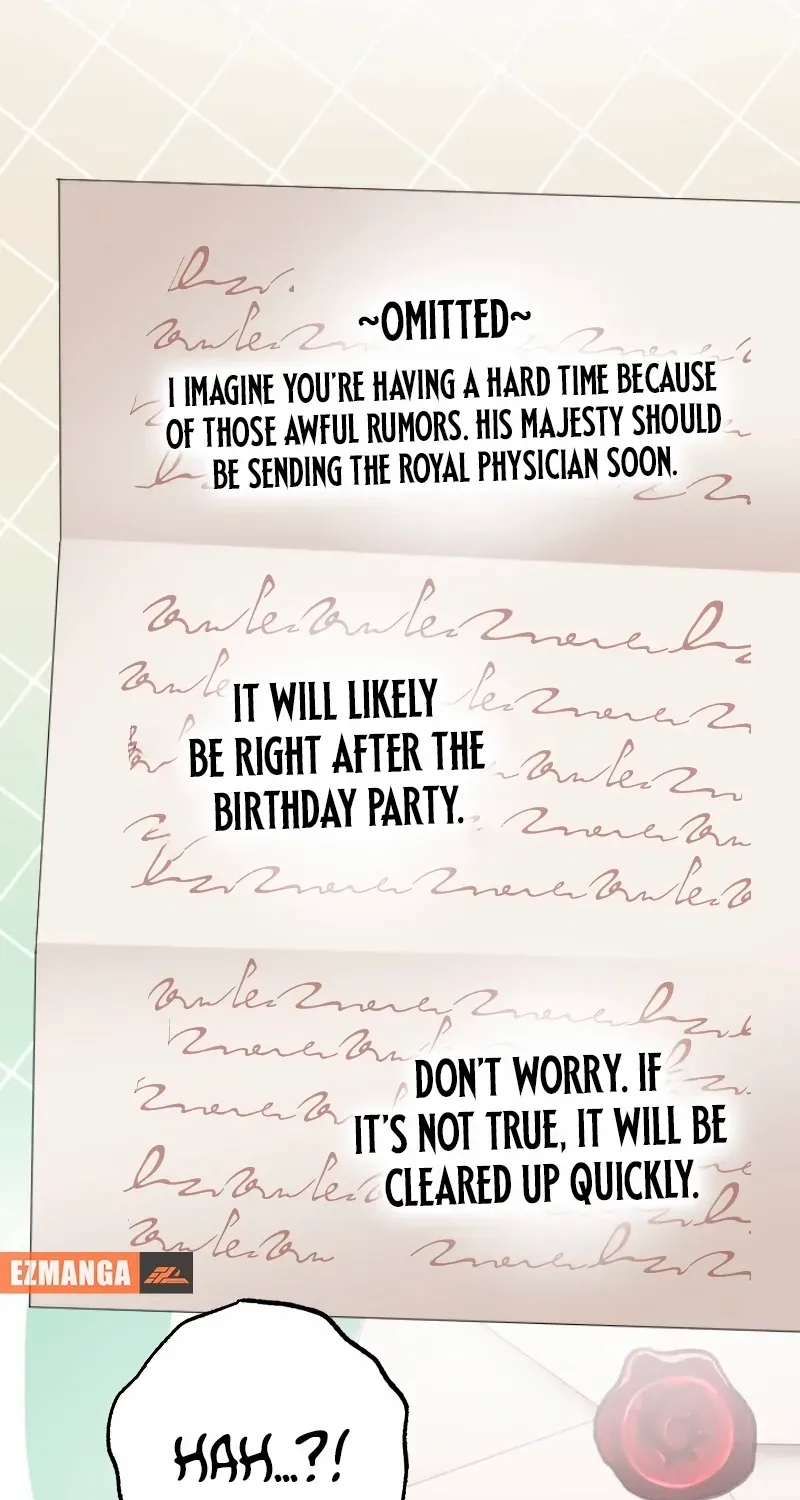 ~OMITTED~
I IMAGINE YOU'RE HAVING A HARD TIME BECAUSE
OF THOSE AWFUL RUMORS. HIS MAJESTY SHOULD
BE SENDING THE ROYAL PHYSICIAN SOON.
IT WILL LIKELY
BE RIGHT AFTER THE
BIRTHDAY PARTY.
DON'T WORRY. IF
IT'S NOT TRUE, IT WILL BE
CLEARED UP QUICKLY.
EZMANGA
HAH...?!